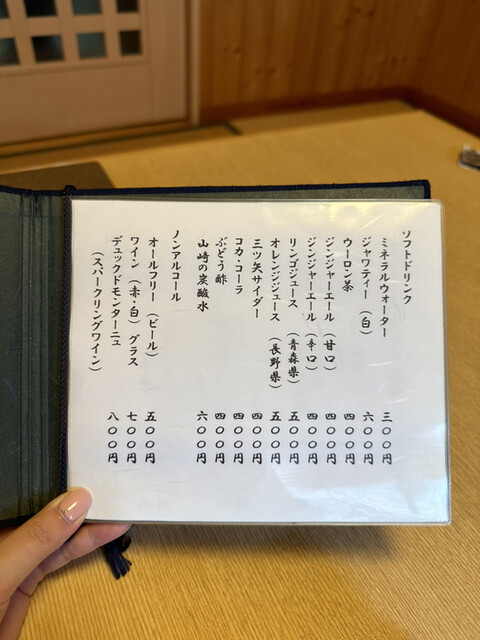 ソフトドリンク
ミネラルウォーター 三〇〇円
ジャワティー（白） 六〇〇円
ウーロン茶 四〇〇円
ジンジャーエール（甘口） 四〇〇円
ジンジャーエール（辛口） 四〇〇円
リンゴジュース（青森県） 五〇〇円
オレンジジュース（長野県） 五〇〇円
三ツ矢サイダー 四〇〇円
コカ・コーラ 四〇〇円
ぶどう酢 四〇〇円
山崎の炭酸水 六〇〇円
ノンアルコール
オールフリー（ビール） 五〇〇円
ワイン（赤・白）グラス 七〇〇円
デュックドモンターニュ 八〇〇円
（スパークリングワイン）